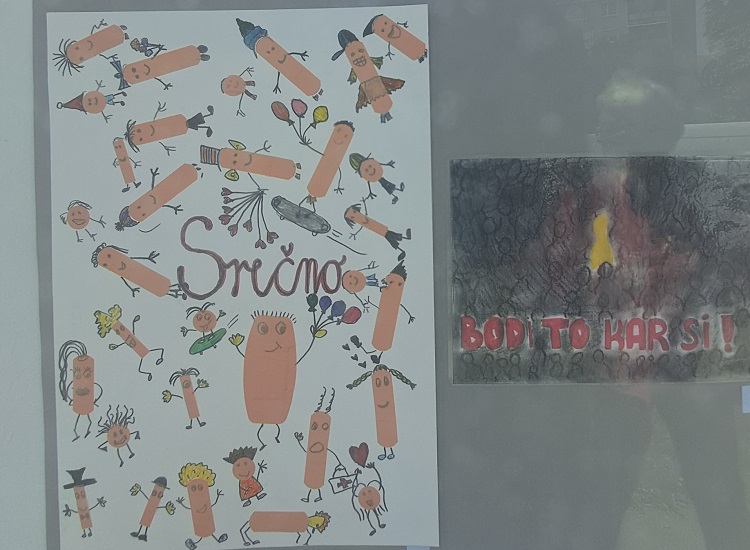 Srečno
BODI TO KAR SI!